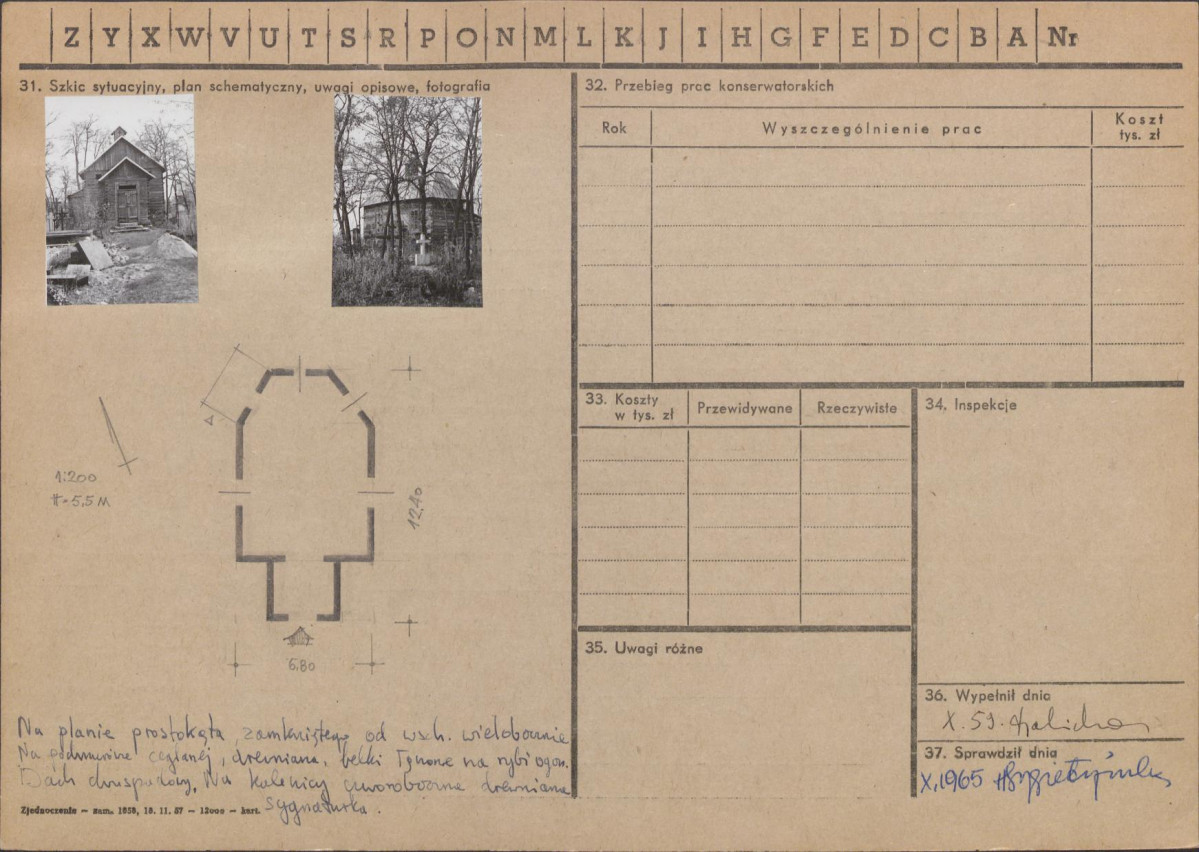 Z Y X W V U T S R P O N M L K J I H G F E D C B A Nr
31. Szkic sytuacyjny, plan schematyczny, uwagi opisowe, fotografia
1:200
H=5,5 M
A
12,40
6,80
Na planie prostokąta, zamkniętego od wsch. wielobocznie
Na podmurówce ceglanej, drewniana, belki łączone na rybi ogon.
Dach dwuspadowy. Na kalenicy czworoboczna drewniana
sygnaturka.
Zjednoczenie – zam. 1658, 18. 11. 57 – 12000 – kart.
32. Przebieg prac konserwatorskich
Rok
Wyszczególnienie prac
Koszt
tys. zł
33. Koszty
w tys. zł
Przewidywane
Rzeczywiste
34. Inspekcje
35. Uwagi różne
36. Wypełnił dnia
X. 59.
37. Sprawdził dnia
X,1965